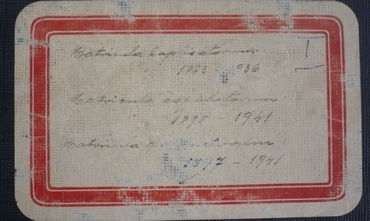 Matricula baptisatorum
1883 - 936
Matricula copulatorum
1895 - 1941
Matricula
1897 - 1941
1